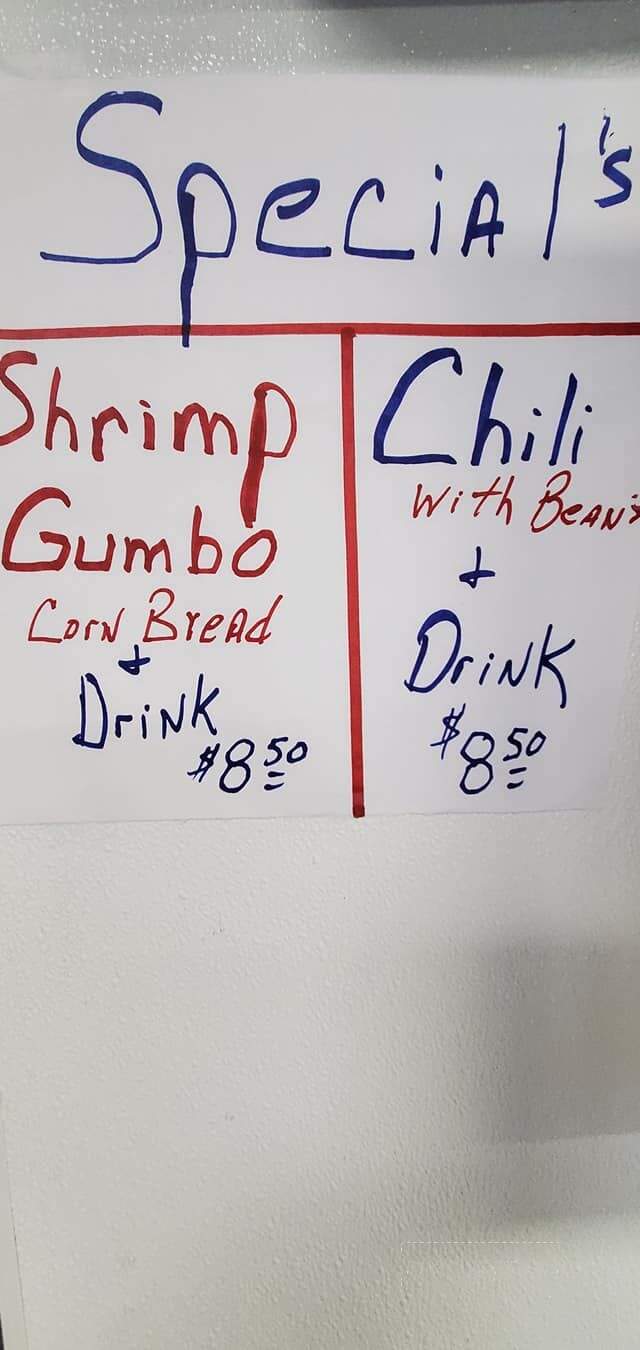 Special's
Shrimp
Gumbo
Corn Bread
+
Drink
$8.50
Chili
With Beans
+
Drink
$8.50